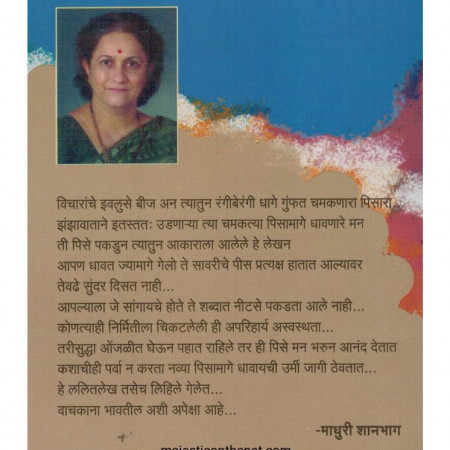 विचारांचे इवलुसे बीज अन त्यातुन रंगीबेरंगी धागे गुंफत चमकणारा पिसारा...
झंझावाताने इतस्ततः उडणाऱ्या त्या चमकत्या पिसामागे धावणारे मन
ती पिसे पकडुन त्यातुन आकाराला आलेले हे लेखन
आपण धावत ज्यामागे गेलो ते सावरीचे पीस प्रत्यक्ष हातात आल्यावर
तेवढे सुंदर दिसत नाही...
आपल्याला जे सांगायचे होते ते शब्दात नीटसे पकडता आले नाही...
कोणत्याही निर्मितीला चिकटलेली ही अपरिहार्य अस्वस्थता...
तरीसुद्धा ओंजळीत घेऊन पहात राहिले तर ही पिसे मन भरुन आनंद देतात
कशाचीही पर्वा न करता नव्या पिसामागे धावायची उर्मी जागी ठेवतात...
हे ललितलेख तसेच लिहिले गेलेत...
वाचकाना भावतील अशी अपेक्षा आहे...
-माधुरी शानभाग